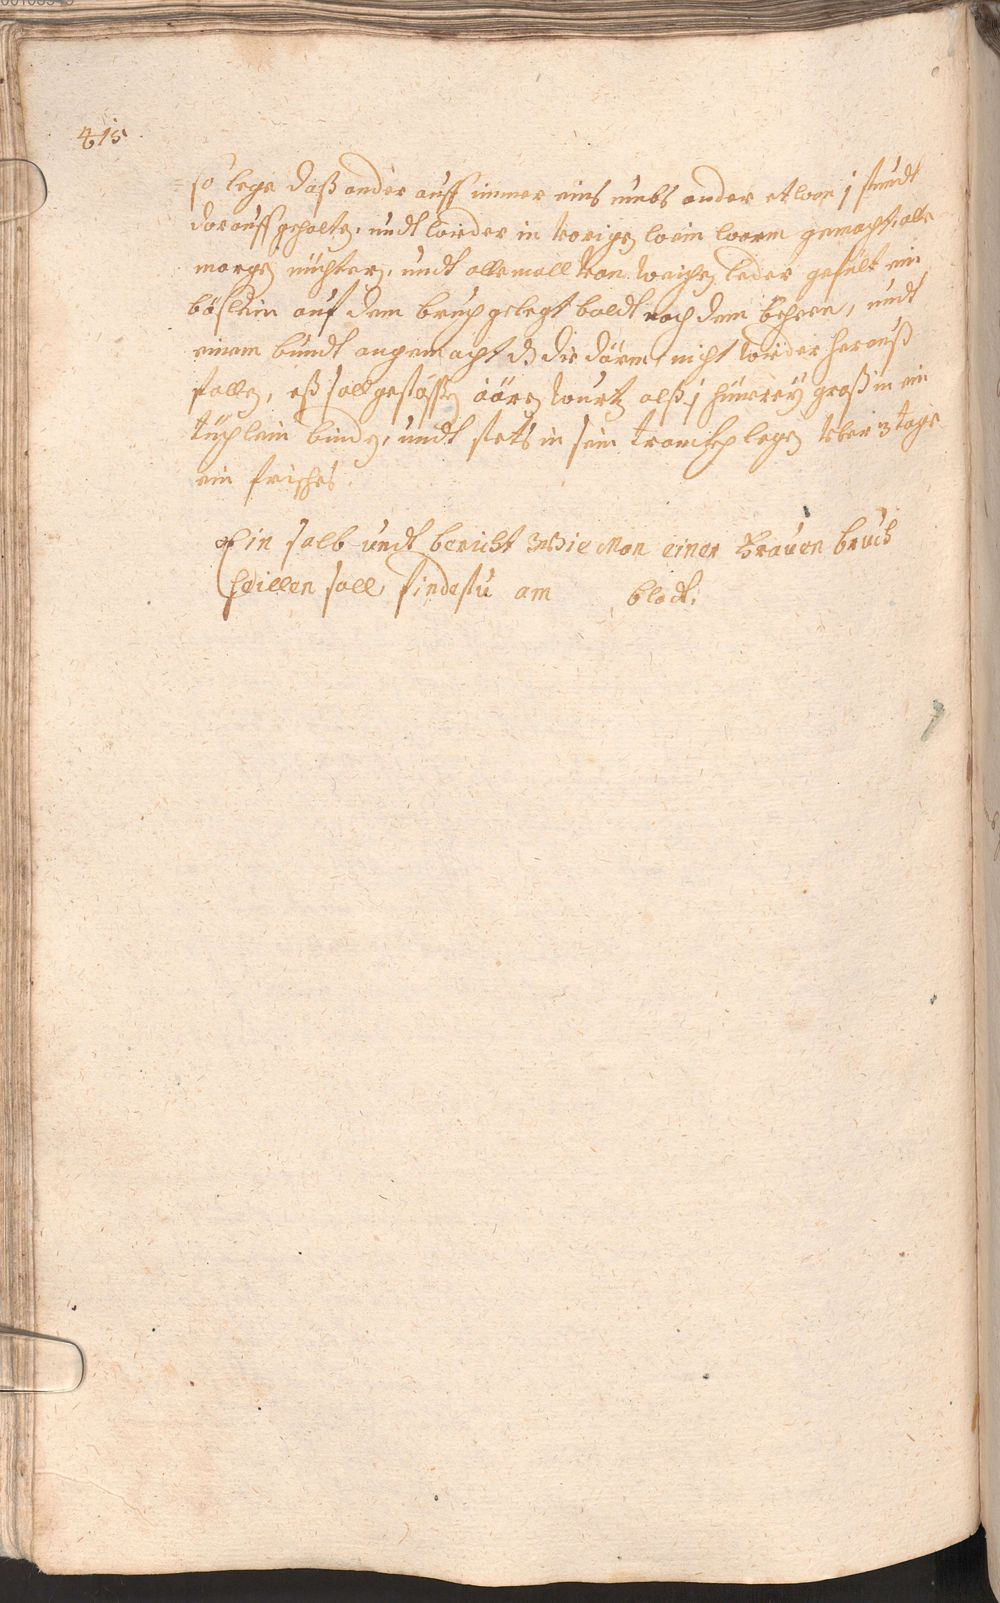 415
so lege daß ander auff immer eins umbs ander etwan j stundt
darauff gehalten, undt wieder in vorigen wein warm gemacht, alle
morgen nüchtern, undt allemall von weichen leder gefült ein
böslein auf dem bruch gelegt baldt nach dem behren, undt
einem bundt angemacht dz die därm nicht wieder herauß
fallen, eß soll gestossen wurtz alß j hünrey groß in ein
tüchlein binden, undt stets in sein legen vber 3 tage
ein frisches.
Ein salb undt bericht Wie Man einer Frauen bruch
heillen soll findestu am bladt.